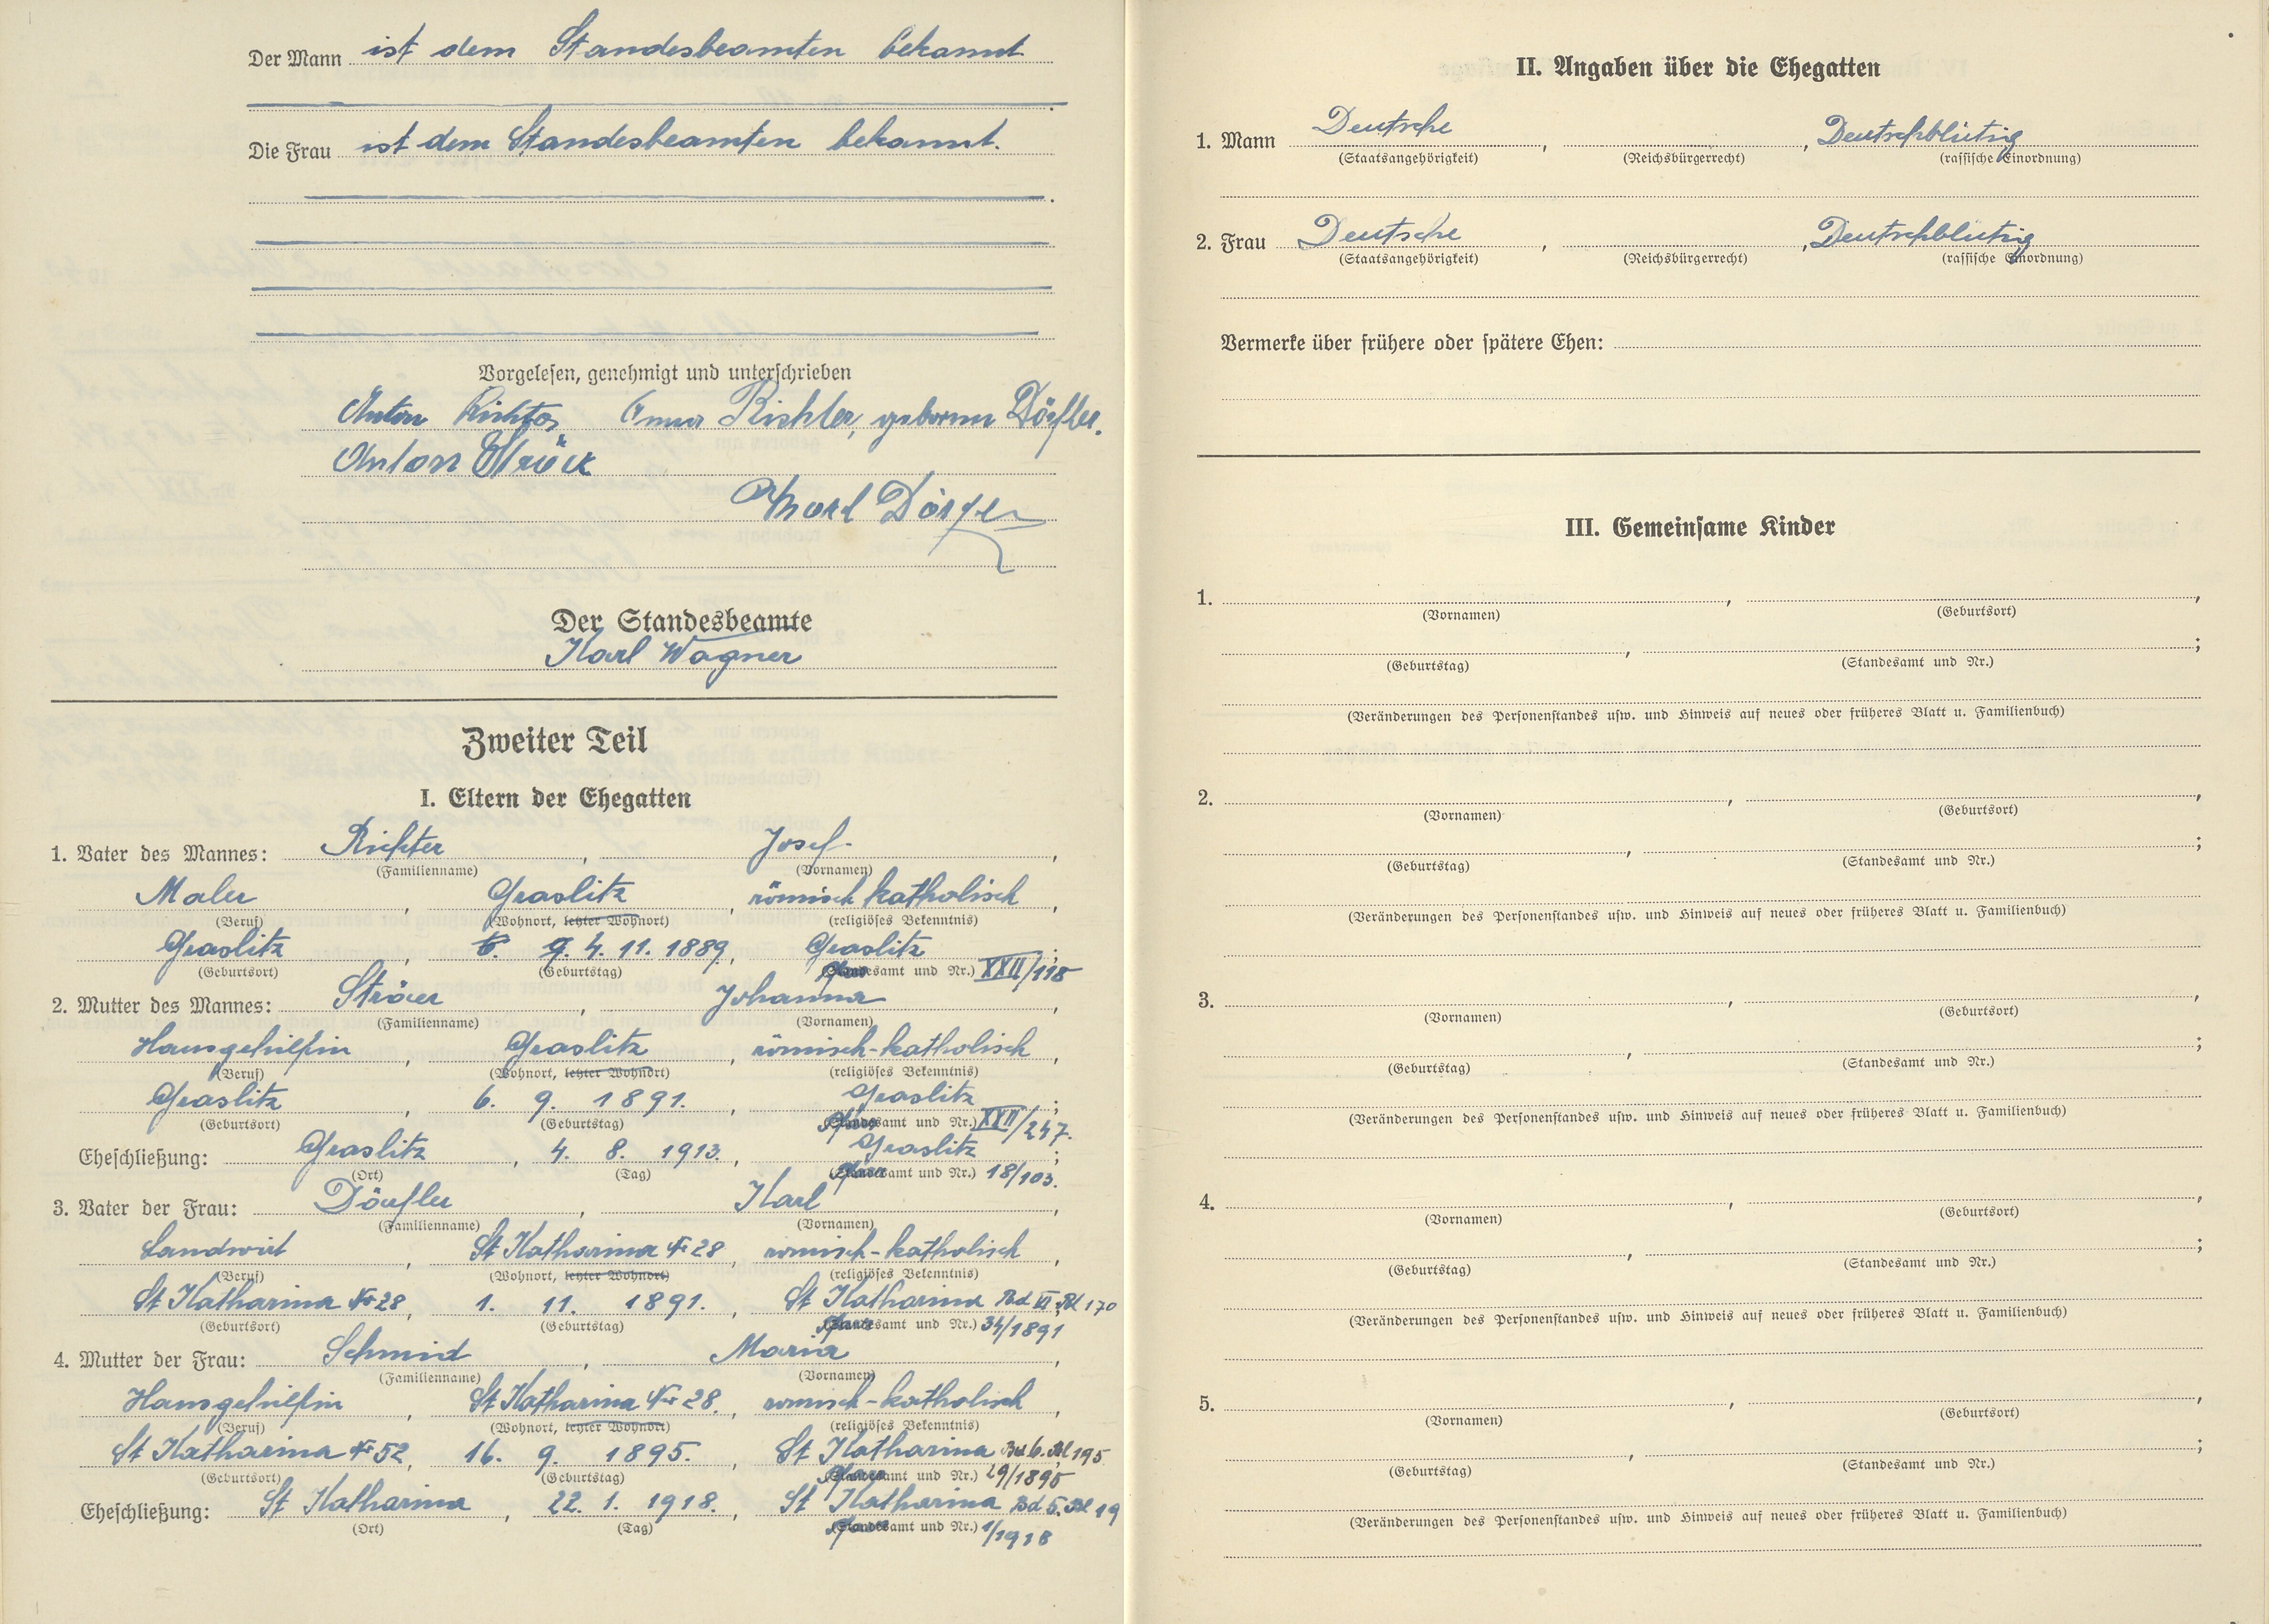 Der Mann ist dem Standesbeamten bekannt
Die Frau ist dem Standesbeamten bekannt.
Vorgelesen, genehmigt und unterschrieben
Anton Richter Anna Richter, geborene Dörfler.
Anton
Dörfler
Der Standesbeamte
Karl Wagner
Zweiter Teil
I. Eltern der Ehegatten
1. Vater des Mannes: Richter, Josef,
(Familienname) (Vornamen)
Maler, Graslitz, römisch katholisch,
(Beruf) (Wohnort, letzter Wohnort) (religiöses Bekenntnis)
Graslitz, 4. 11. 1889, Graslitz;
(Geburtsort) (Geburtstag) (Standesamt und Nr.) XXII/118
2. Mutter des Mannes: Johanna,
(Familienname) (Vornamen)
Hausgehilfin, Graslitz, römisch-katholisch,
(Beruf) (Wohnort, letzter Wohnort) (religiöses Bekenntnis)
Graslitz, 6. 9. 1891., Graslitz;
(Geburtsort) (Geburtstag) (Standesamt und Nr.) XXII/247.
Eheschließung: Graslitz, 4. 8. 1913., Graslitz;
(Ort) (Tag) (Standesamt und Nr.) 18/103.
3. Vater der Frau: Dörfler, Karl,
(Familienname) (Vornamen)
Landwirt, St Katharina Nr 28, römisch-katholisch,
(Beruf) (Wohnort, letzter Wohnort) (religiöses Bekenntnis)
St Katharina Nr 28, 1. 11. 1891., St Katharina Bd VI, Bl 170
(Geburtsort) (Geburtstag) (Standesamt und Nr.) 34/1891
4. Mutter der Frau: Schmid, Maria,
(Familienname) (Vornamen)
Hausgehilfin, St Katharina Nr 28., römisch-katholisch,
(Beruf) (Wohnort, letzter Wohnort) (religiöses Bekenntnis)
St Katharina Nr 52, 16. 9. 1895., St Katharina Bd 6. Bl 195
(Geburtsort) (Geburtstag) (Standesamt und Nr.) 29/1895
Eheschließung: St Katharina, 22. 1. 1918., St Katharina Bd 5. Bl 19
(Ort) (Tag) (Standesamt und Nr.) 1/1918
II. Angaben über die Ehegatten
1. Mann Deutsche, , Deutschblütig
(Staatsangehörigkeit) (Reichsbürgerrecht) (rassische Einordnung)
2. Frau Deutsche, , Deutschblütig
(Staatsangehörigkeit) (Reichsbürgerrecht) (rassische Einordnung)
Vermerke über frühere oder spätere Ehen:
III. Gemeinsame Kinder
1. , ,
(Vornamen) (Geburtsort)
, ;
(Geburtstag) (Standesamt und Nr.)
(Veränderungen des Personenstandes usw. und Hinweis auf neues oder früheres Blatt u. Familienbuch)
2. , ,
(Vornamen) (Geburtsort)
, ;
(Geburtstag) (Standesamt und Nr.)
(Veränderungen des Personenstandes usw. und Hinweis auf neues oder früheres Blatt u. Familienbuch)
3. , ,
(Vornamen) (Geburtsort)
, ;
(Geburtstag) (Standesamt und Nr.)
(Veränderungen des Personenstandes usw. und Hinweis auf neues oder früheres Blatt u. Familienbuch)
4. , ,
(Vornamen) (Geburtsort)
, ;
(Geburtstag) (Standesamt und Nr.)
(Veränderungen des Personenstandes usw. und Hinweis auf neues oder früheres Blatt u. Familienbuch)
5. , ,
(Vornamen) (Geburtsort)
, ;
(Geburtstag) (Standesamt und Nr.)
(Veränderungen des Personenstandes usw. und Hinweis auf neues oder früheres Blatt u. Familienbuch)